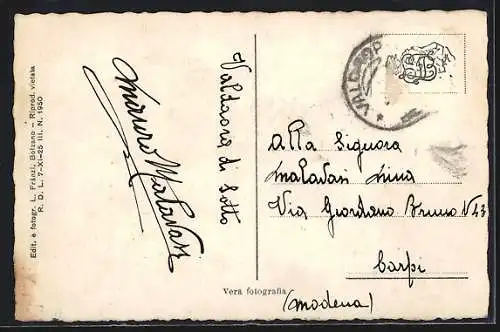 Edit. e fotogr. L. Fränzl, Bolzano – Riprod. vietata
R. D. L. 7-XI-25 III. N. 1950
Mauro Malavasi
Valdaora di Sotto
VALDAOR
Alla Signora
Malavasi Nina
Via Giordano Bruno N43
Carpi
(Modena)
Vera fotografia